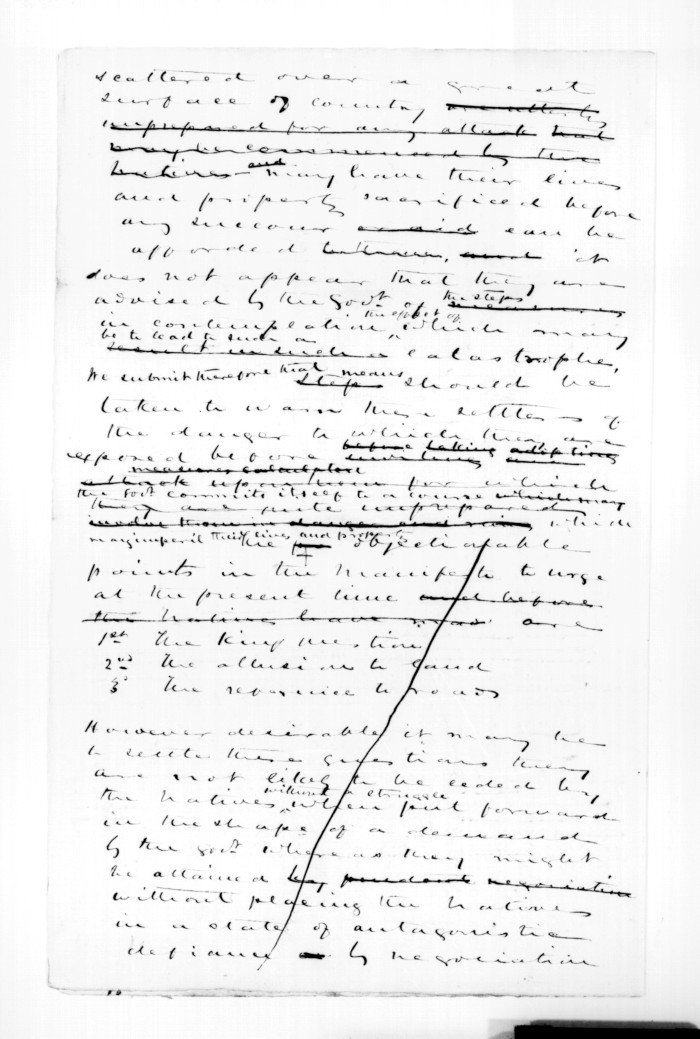 scattered over a great
surface of country are utterly
unprepared for any attack that
may be commenced by the
Natives - and may have their lives
and property sacrificed before
any succour or aid can be
afforded and it
does not appear that they are
advised by the Govt. of the steps
in contemplation the effect of which may
be to lead to such a
result in such a catastrophe,
We submit therefore that means
steps should be
taken to warn these settlers of
the danger to which they are
exposed before before taking adopting
measures calculated
attack upon them for which
the Govt commits itself to a course which may
they are quite unprepared
involve them in danger and ruin which
may imperil their lives and property
The objectionable
points in the Manifesto to urge
at the present time and before
the Natives have are
1st The King question
2nd The allusions to land
3d The reference to roads
However desirable it may be
to settle these questions they
are not likely to be ceded by
without a struggle
the Natives when put forward
in the shape of a demand
by the govt. whereas they might
be attained by prudent negociation
without placing the Natives
in a state of antagonistic
defiance by negociation